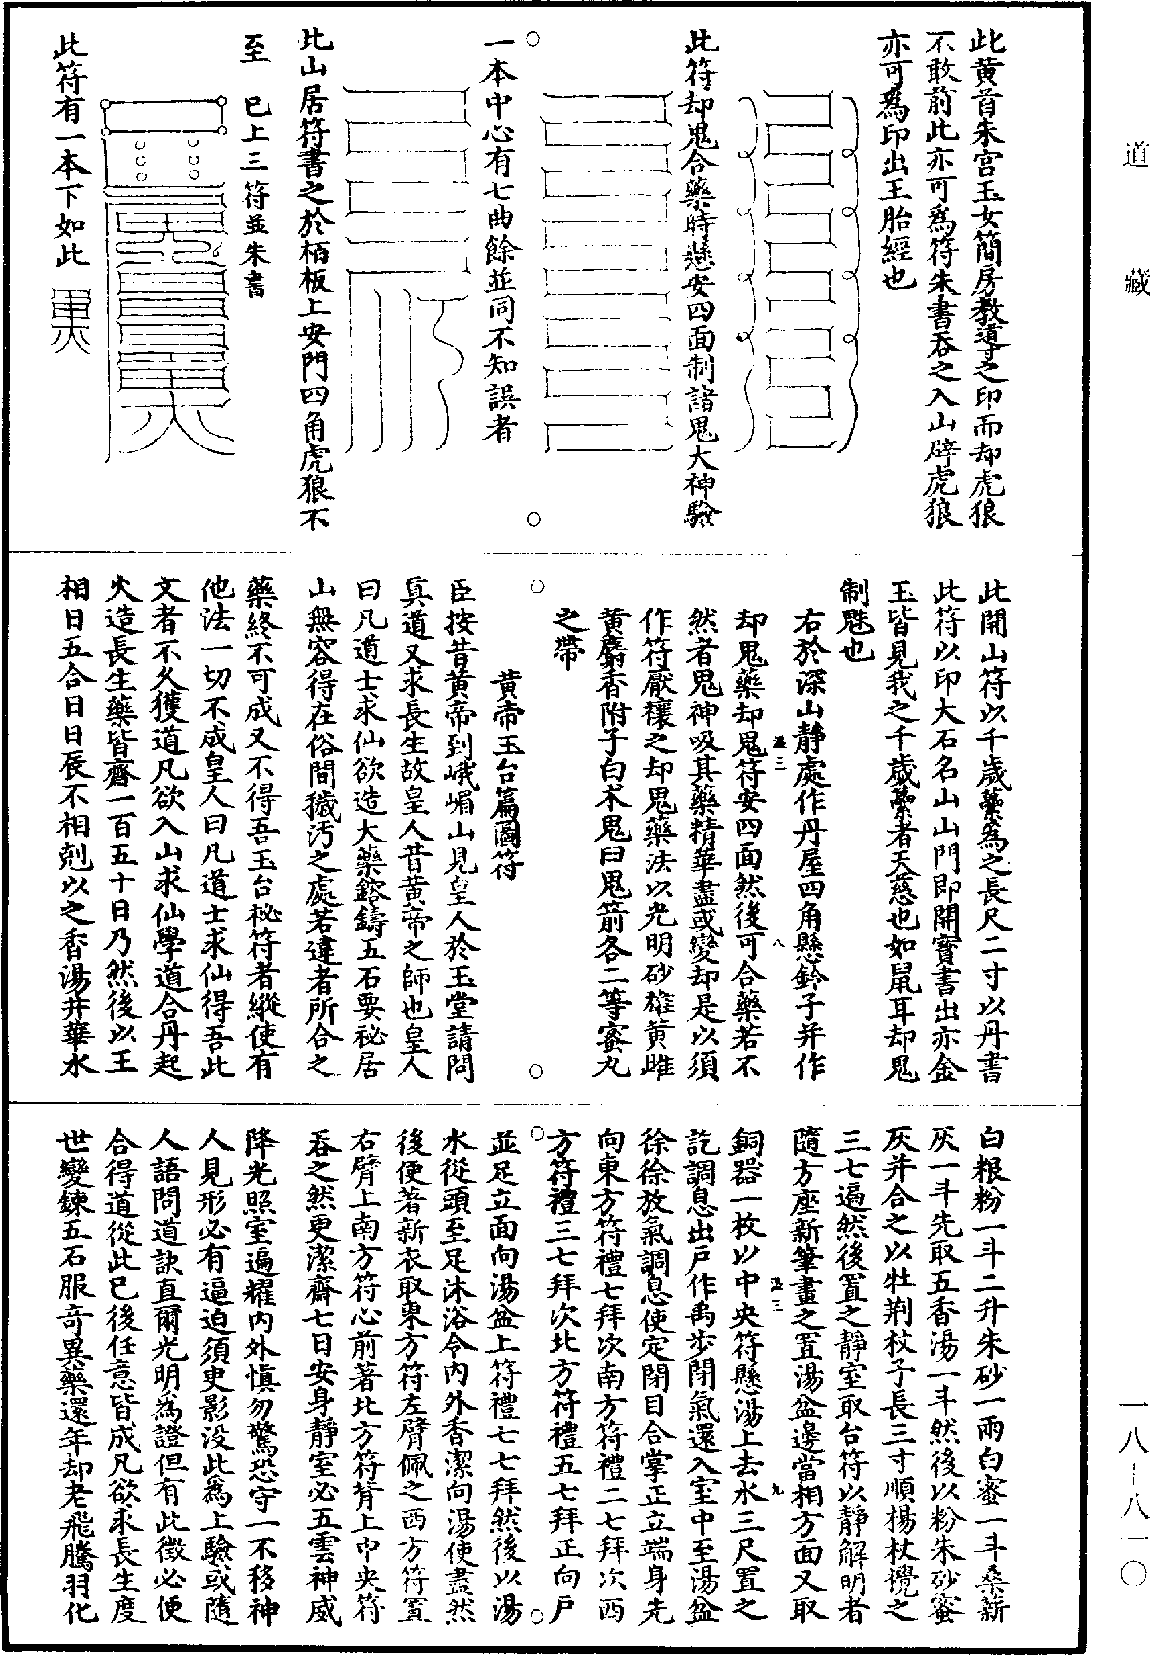 道藏
此黃首朱宫玉女簡房教導之印而却虎狼
不敢前此亦可為符朱書吞之入山辟虎狼
亦可為印出玉胎經也
此符却鬼合藥時懸安四面制諸鬼大神驗
一本中心有七曲餘並同不知誤者
此山居符書之於栢板上安門四角虎狼不
至　已上三符並朱書
此符有一本下如此
此開山符以千歲虆為之長尺二寸以丹書
此符以印大石名山山門即開寶書出亦金
玉皆見我之千歲虆者天慈也如鼠耳却鬼
制魃也
右於深山静處作丹屋四角懸鈴子并作
却鬼藥却鬼符安四面然後可合藥若不
然者鬼神吸其藥精華盡或變却是以須
作符厭禳之却鬼藥法以光明砂雄黃雌
黃麝香附子白术鬼臼鬼箭各二等蜜丸
之帶
黃帝玉台篇圖符
臣按昔黃帝到峨嵋山見皇人於玉堂請問
真道又求長生故皇人昔黃帝之師也皇人
曰凡道士求仙欲造大藥鎔鑄五石要秘居
山無容得在俗間穢汚之處若違者所合之
藥終不可成又不得吾玉台秘符者縱使有
他法一切不成皇人曰凡道士求仙得吾此
文者不久獲道凡欲入山求仙學道合丹起
火造長生藥皆齋一百五十日乃然後以王
相日五合日日辰不相剋以之香湯井華水
白根粉一斗二升朱砂一兩白蜜一斗桑薪
灰一斗先取五香湯一斗然後以粉朱砂蜜
灰并合之以牡荆杖子長三寸順楊杖攪之
三七遍然後置之靜室取台符以靜解明者
隨方座新筆畫之置湯盆邊當相方面又取
銅器一枚以中央符懸湯上去水三尺置之
訖調息出戶作禹步閉氣還入室中至湯盆
徐徐放氣調息使定閉目合掌正立端身先
向東方符禮七拜次南方符禮二七拜次西
方符禮三七拜次北方符禮五七拜正向戶
並足立面向湯盆上符禮七七拜然後以湯
水從頭至足沐浴令内外香潔向湯使盡然
後便著新衣取東方符左臂佩之西方符置
右臂上南方符心前著北方符背上中央符
吞之然更潔齋七日安身靜室必五雲神威
降光照室遍耀内外慎勿驚恐守一不移神
人見形必有逼迫須臾影沒此為上驗或隨
人語問道訣直爾光明為證但有此徵必便
合得道從此已後任意皆成凡欲求長生度
世變鍊五石服奇異藥還年却老飛騰羽化
一八—八一〇